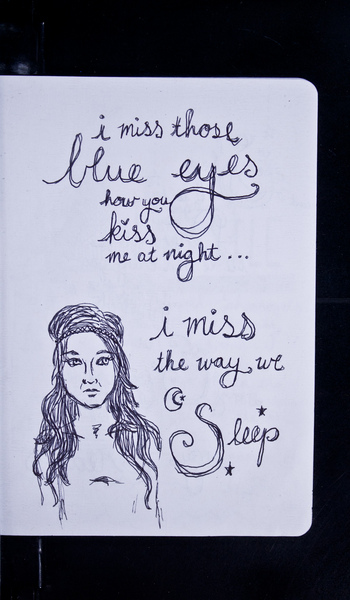 i miss those
blue eyes
how you
kiss
me at night...
i miss
the way we
Sleep